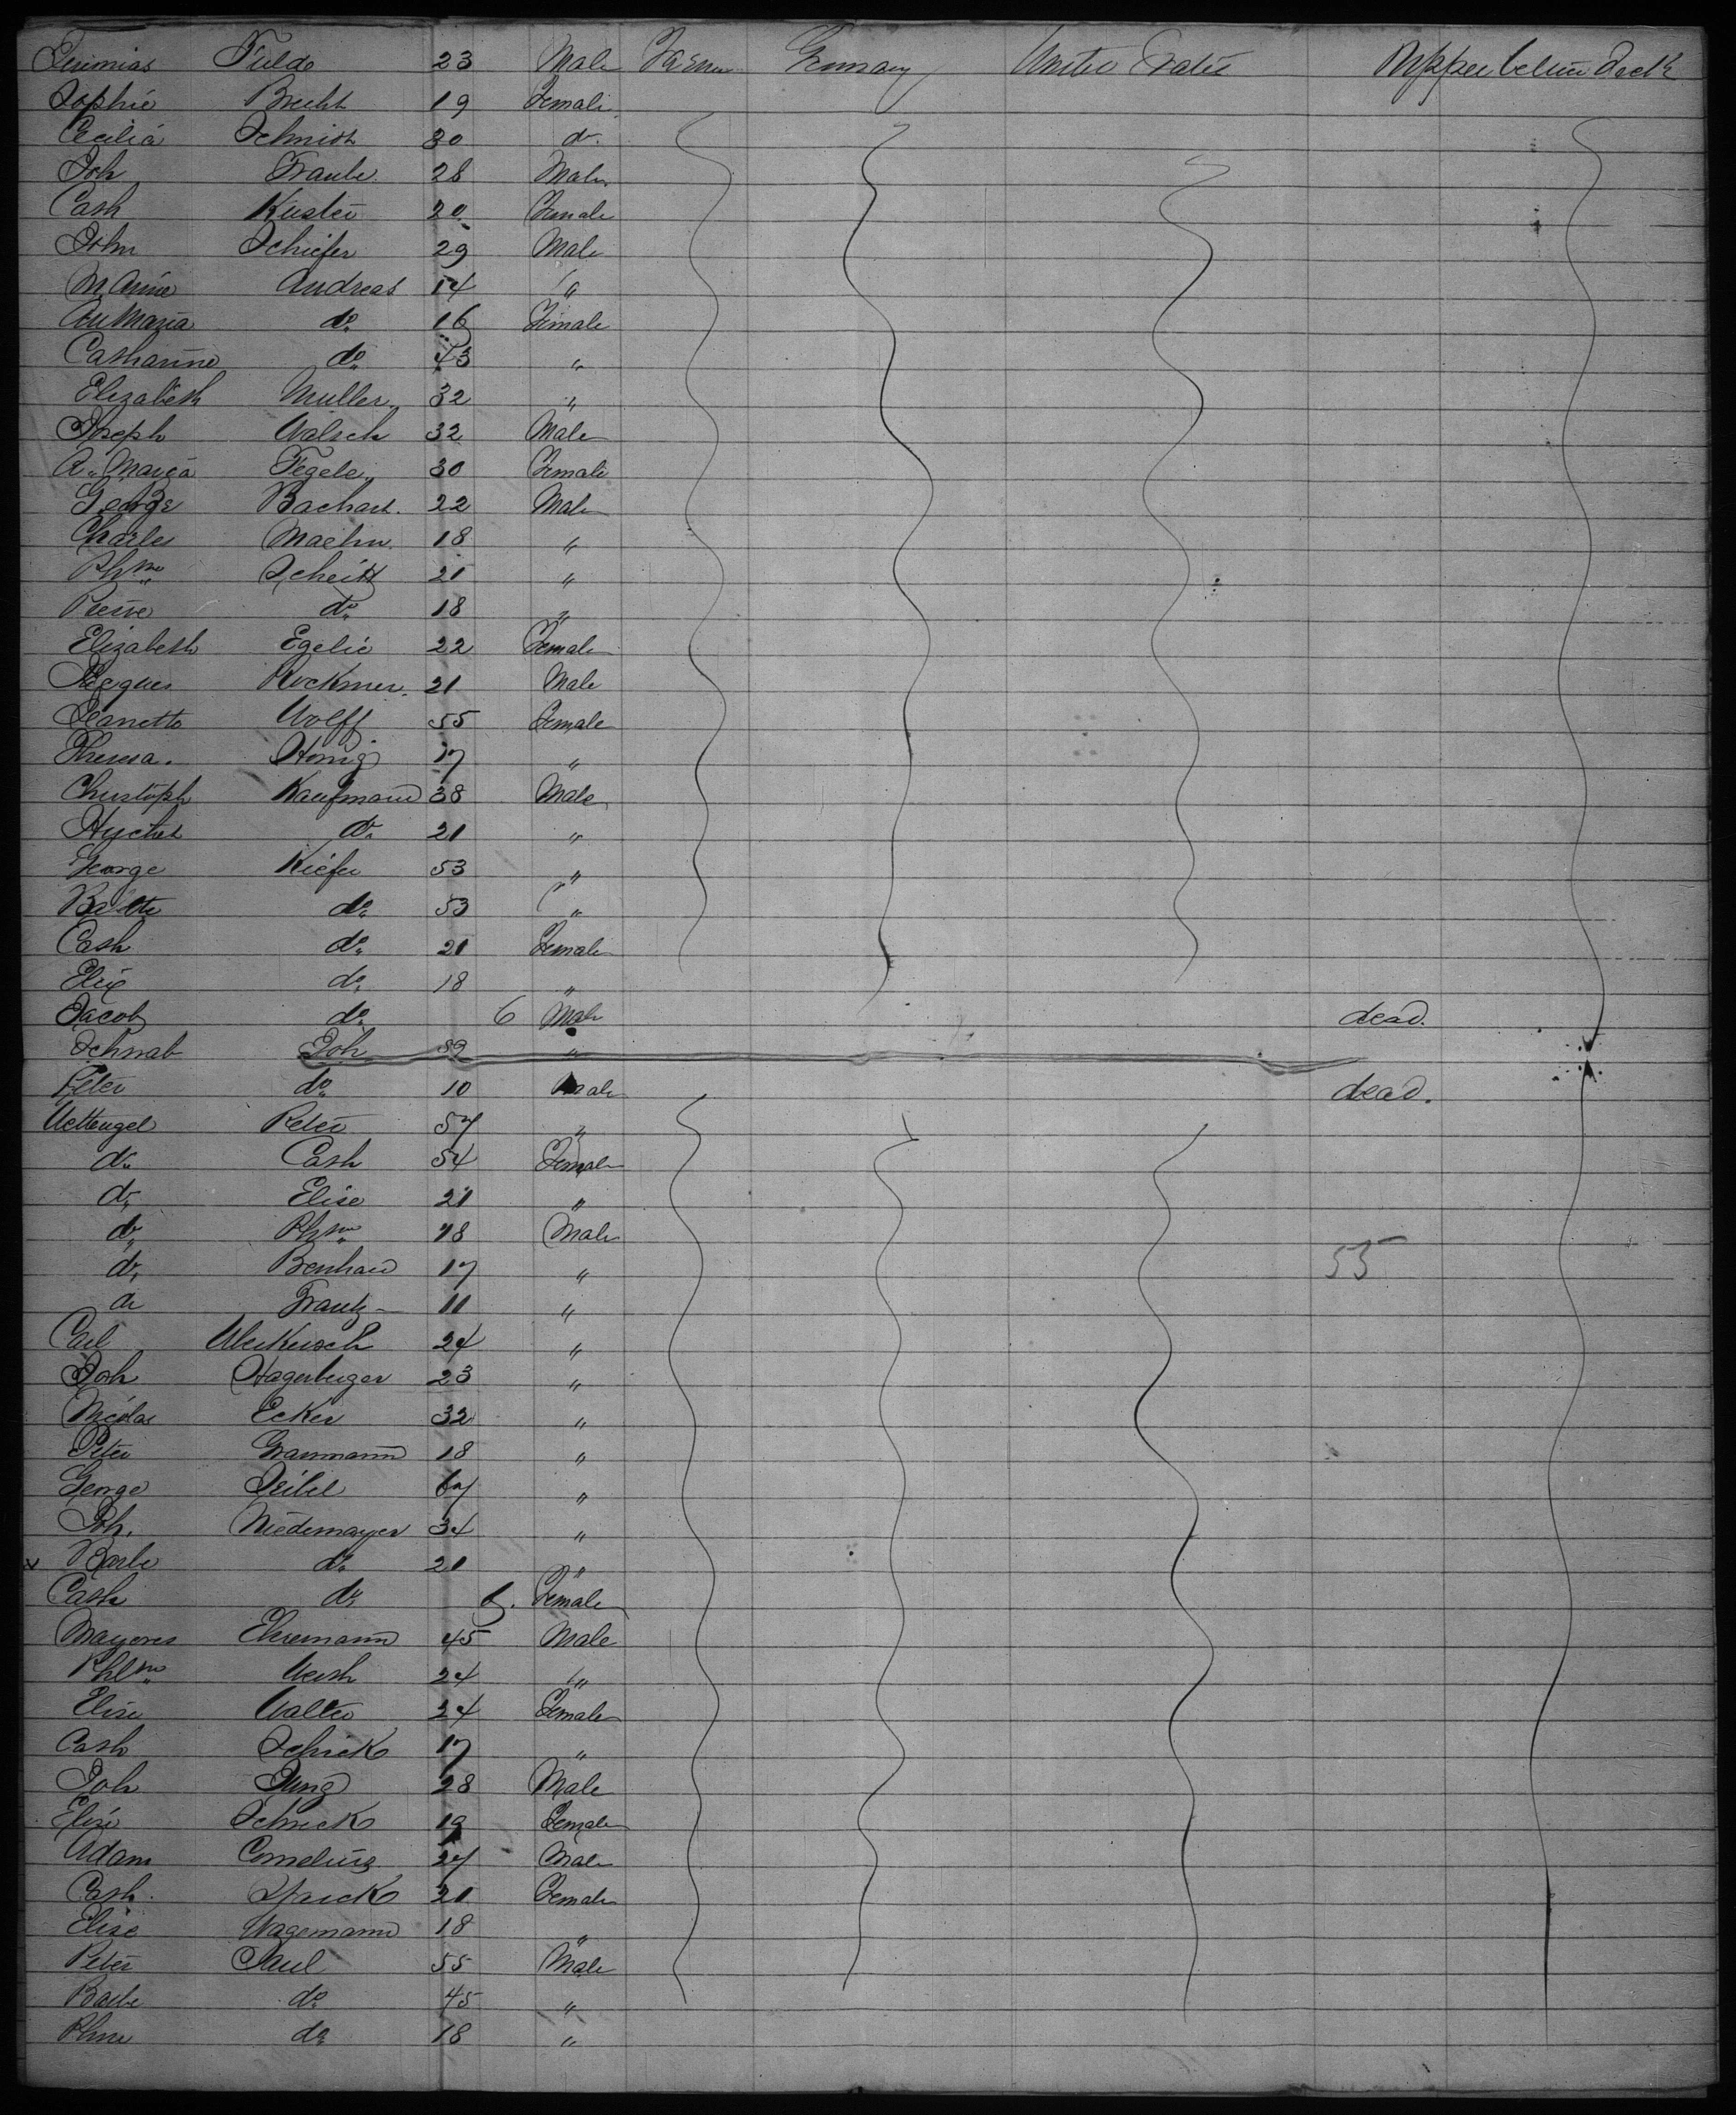 Jeremias Fulde 23 Male Farmer Germany United States Upper between Deck
Sophie Brecht 19 Female
Cecilia Schmidt 30 do
Joh Traube 28 Male
Cath Kuster 20 Female
John Schiefer 29 Male
M. Anne Andreas 14 "
An Maria do 16 Female
Catharine do 43 "
Elizabeth Muller 32 "
Joseph Walsch 32 Male
A. Maria Tegele 30 Female
George Bachart. 22 Male
Charles Maehn 18 "
Phme Scheitt 21 "
Pierre do 18 "
Elizabeth Egelie 22 Female
Jacques Rockmer. 21 Male
Jeanette Wolff 55 Female
Theresa. Honig 17 "
Christoph Kaufmann 38 Male
do 21 "
George Kiefer 53 "
do 53 "
Cath do 21 Female
Elis do 18 "
Jacob do 6 Male dead.
Schwab Joh 59 "
Peter do 10 Male dead.
Uettengel Peter 57 "
do Cath 54 Female
do Elise 21 "
do Phme 18 Male
do Bernhard 17 " 55
do Frantz 11 "
Carl 24 "
Joh Hagerburger 23 "
Nicolas Ecker 32 "
Peter Graumann 18 "
George Seibel 67 "
Joh. Niedemayer 34 "
x Barbe do 21 "
Cath do 6. Female
Ehremann 45 Male
24 "
Elise Walter 24 Female
Cath Schick 17 "
Joh Jung 28 Male
Elise Schick 19 Female
Adam Cornelius 27 Male
Cath. Starck 21 Female
Elise Wagemann 18 "
Peter Paul 55 Male
Barbe do 45 "
Phme do 18 "